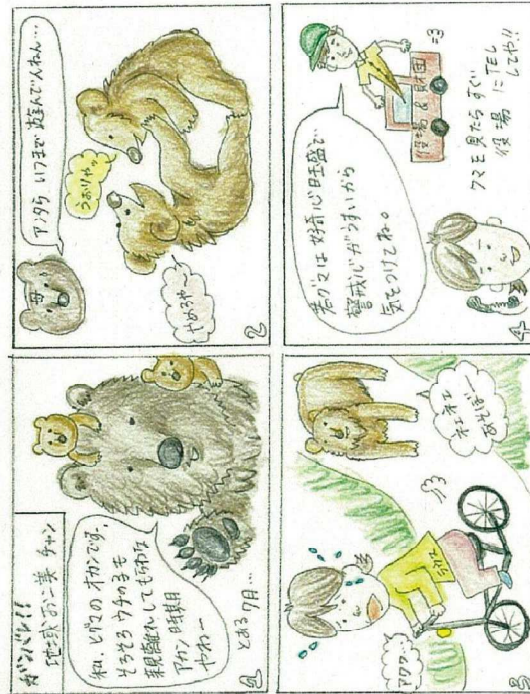 ガンバレ!!
地域おこ美チャン
私、ヒグマのオカンです。
そろそろウチの子も
親離れしてもらわな
アカン時期
やわー
とある7月…
1
アンタら いつまで 遊んでんねん…
母
うおりゃっ
やめろや〜
2
ネェネェ
あそぼー
アワワ…
3
若グマは好奇心旺盛で
警戒心がうすいから
気をつけてね。
役場&財団
クマを見たらすぐ
役場にTEL
してや!!
4